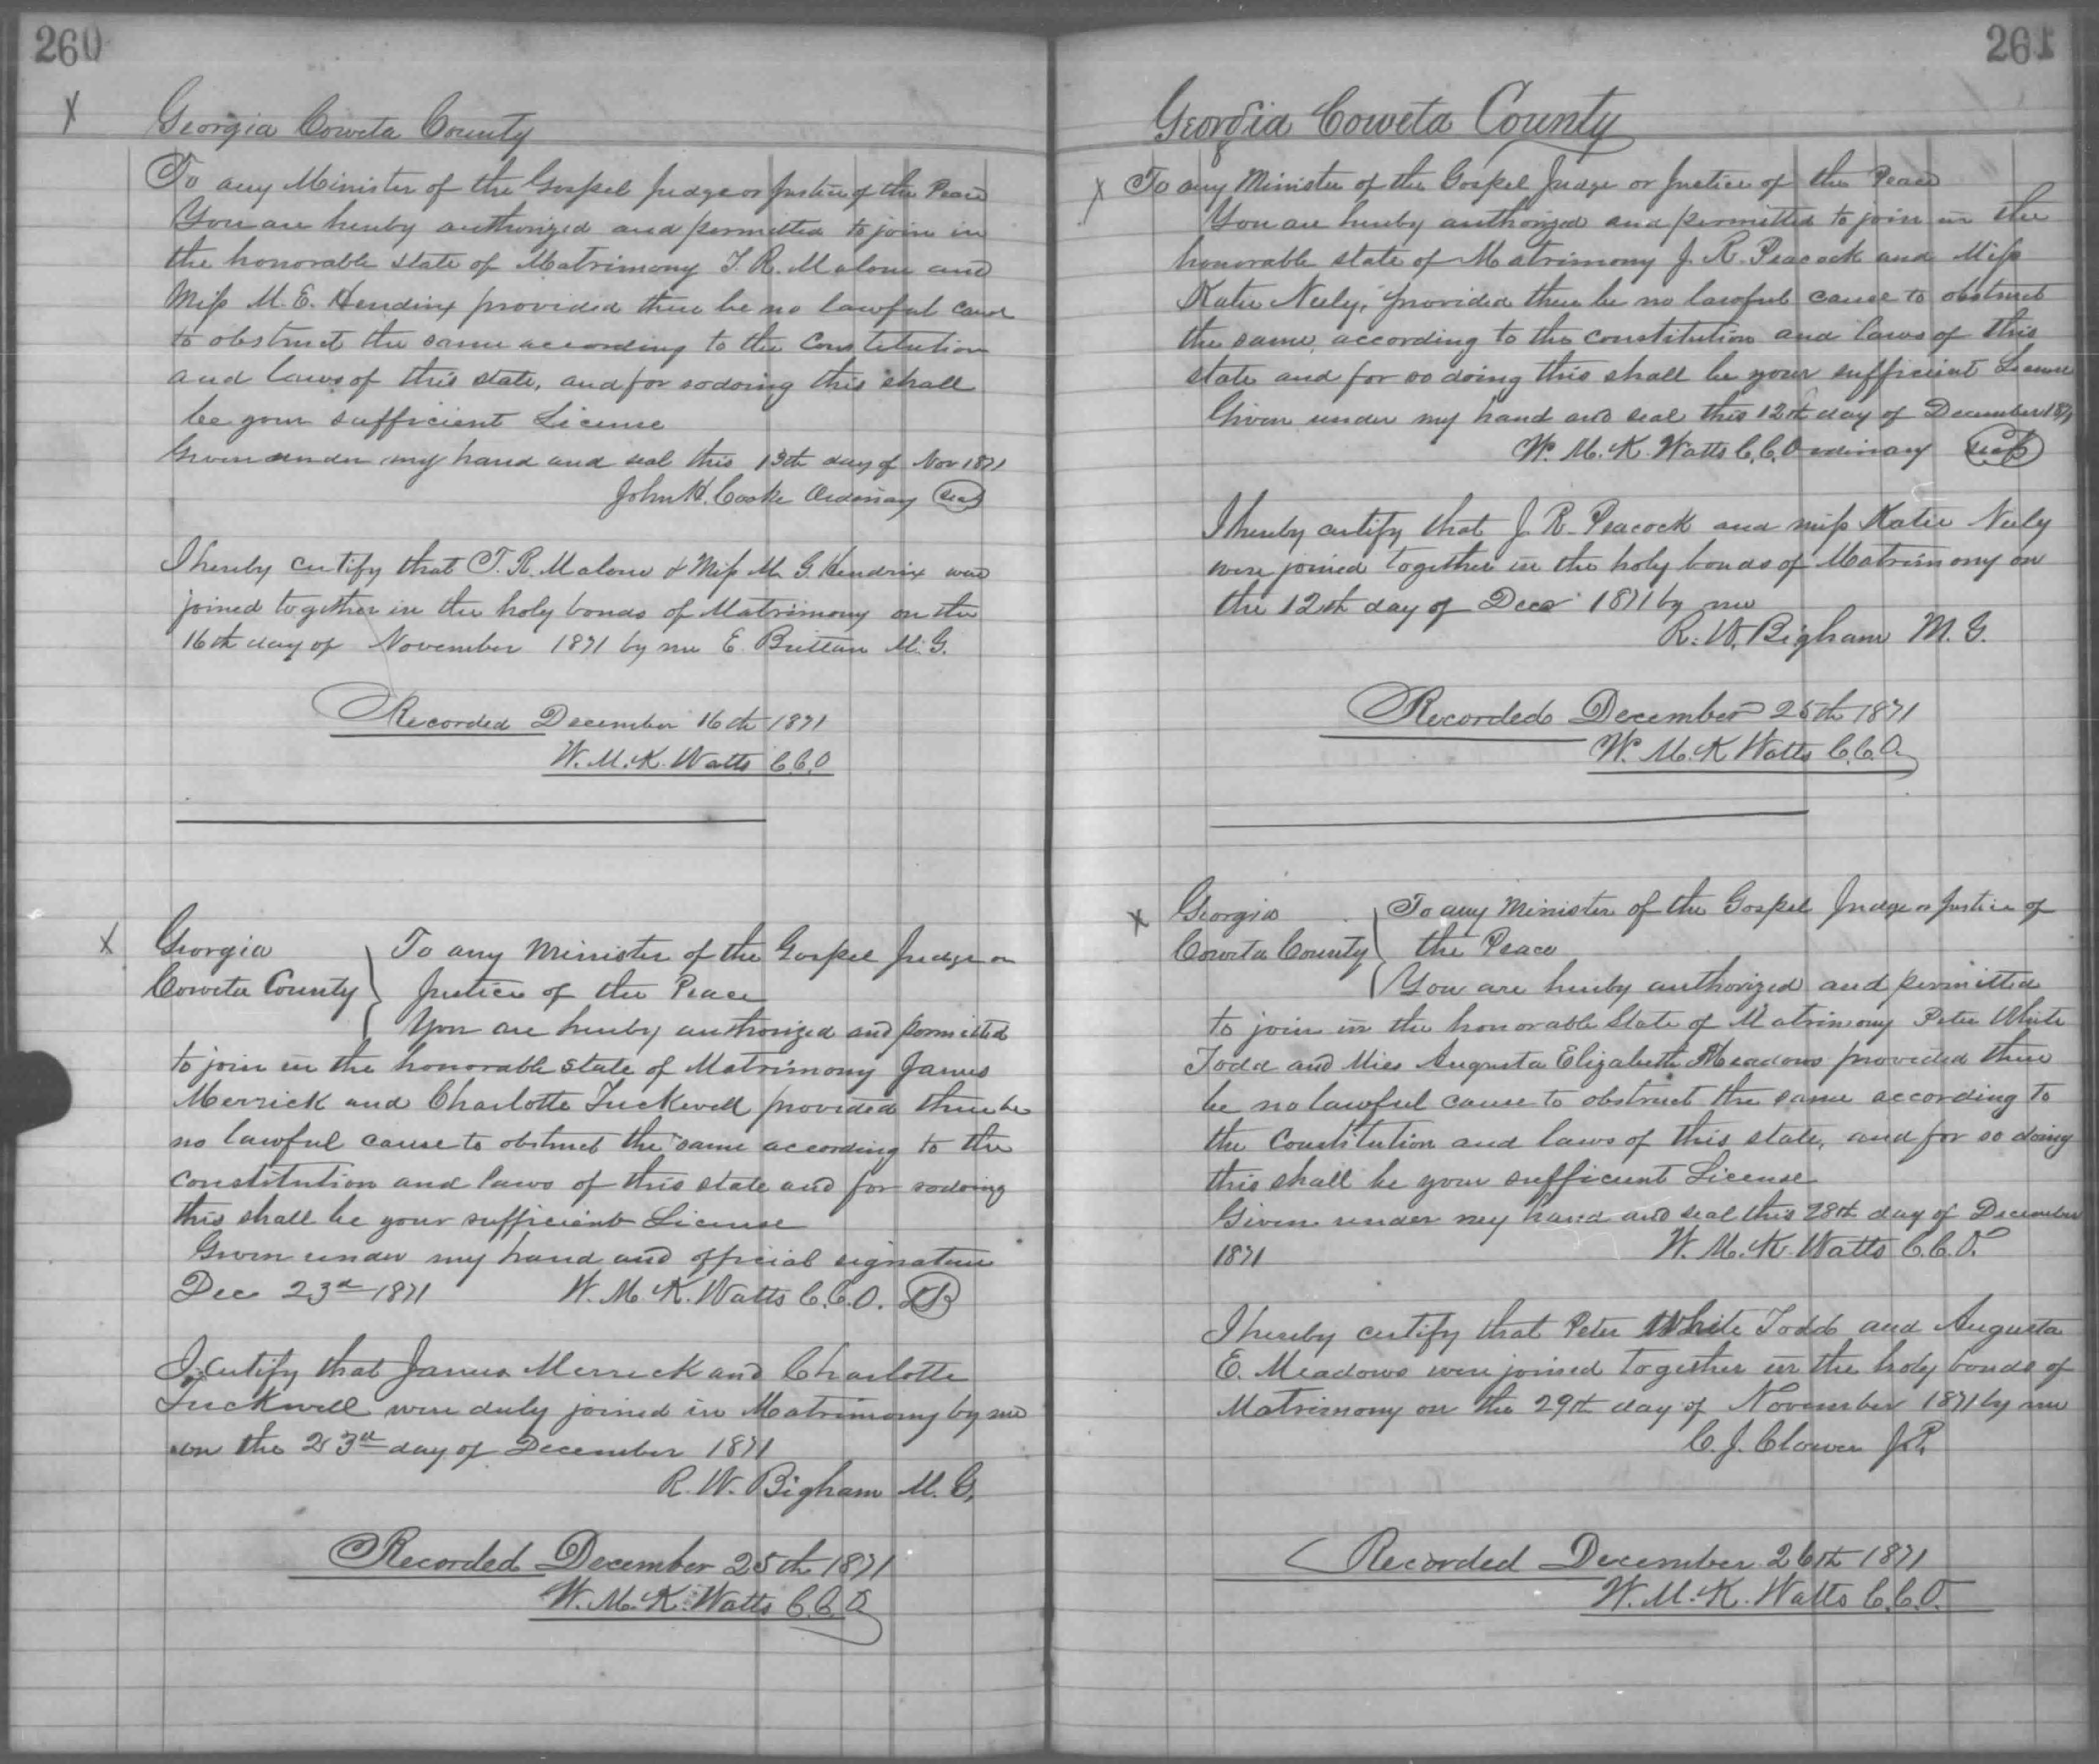 260
X
Georgia Coweta County
To any Minister of the Gospel Judge or Justice of the Peace
You are hereby authorized and permitted to join in
the honorable state of Matrimony T. R. Malone and
Miss M. E. Hendrix provided there be no lawful cause
to obstruct the same according to the Constitution
and laws of this state, and for so doing this shall
be your sufficient License
Given under my hand and seal this 13th day of Nov 1871
John H. Cooke Ordinary Seal
I hereby certify that T. R. Malone & Miss M. G. Hendrix were
joined together in the holy bonds of Matrimony on the
16th day of November 1871 by me E. Brittan M. G.
Recorded December 16th 1871
W. M. K. Watts C.C.O
X Georgia } To any Minister of the Gospel Judge or
Coweta County } Justice of the Peace
You are hereby authorized and permitted
to join in the honorable state of Matrimony James
Merrick and Charlotte Tuckwell provided there be
no lawful cause to obstruct the same according to the
constitution and laws of this state and for so doing
this shall be your sufficient License
Given under my hand and official signature
Dec 23rd 1871 W. M. K. Watts C.C.O.
I certify that James Merrick and Charlotte
Tuckwell were duly joined in Matrimony by me
on the 23rd day of December 1871
R. W. Bigham M. G.
Recorded December 25th 1871
W. M. K. Watts C.C.O.
261
Georgia Coweta County
X To any Minister of the Gospel Judge or Justice of the Peace
You are hereby authorized and permitted to join in the
honorable state of Matrimony J. R. Peacock and Miss
Katie Neely, provided there be no lawful cause to obstruct
the same, according to the constitution and laws of this
state and for so doing this shall be your sufficient License
Given under my hand and seal this 12th day of December 1871
W. M. K. Watts C.C. Ordinary Seal
I hereby certify that J. R. Peacock and miss Katie Neely
were joined together in the holy bonds of Matrimony on
the 12th day of Decr 1871 by me
R. W. Bigham M. G.
Recorded December 25th 1871
W. M. K Watts C.C.O.
X Georgia } To any Minister of the Gospel Judge or Justice of
Coweta County } the Peace
You are hereby authorized and permitted
to join in the honorable State of Matrimony Peter White
Todd and Miss Augusta Elizabeth Meadows provided there
be no lawful cause to obstruct the same according to
the Constitution and laws of this state, and for so doing
this shall be your sufficient License
Given under my hand and seal this 28th day of December
1871 W. M. K. Watts C.C.O.
I hereby certify that Peter White Todd and Augusta
E. Meadows were joined together in the holy bonds of
Matrimony on the 29th day of November 1871 by me
C. J. Clower J.P.
Recorded December 26th 1871
W. M. K. Watts C.C.O.